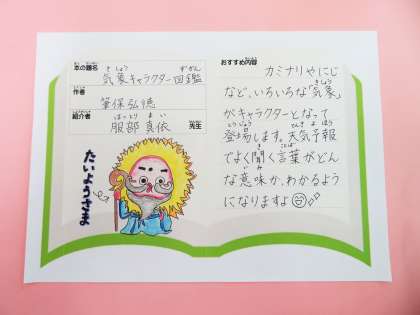 本の題名
気象キャラクター図鑑
作者
筆保弘徳
紹介者
服部真依先生
たいようさま
おすすめ内容
カミナリやにじ
など、いろいろな「気象」
がキャラクターとなって
登場します。天気予報
でよく聞く言葉がどん
な意味か、わかるよう
になりますよ